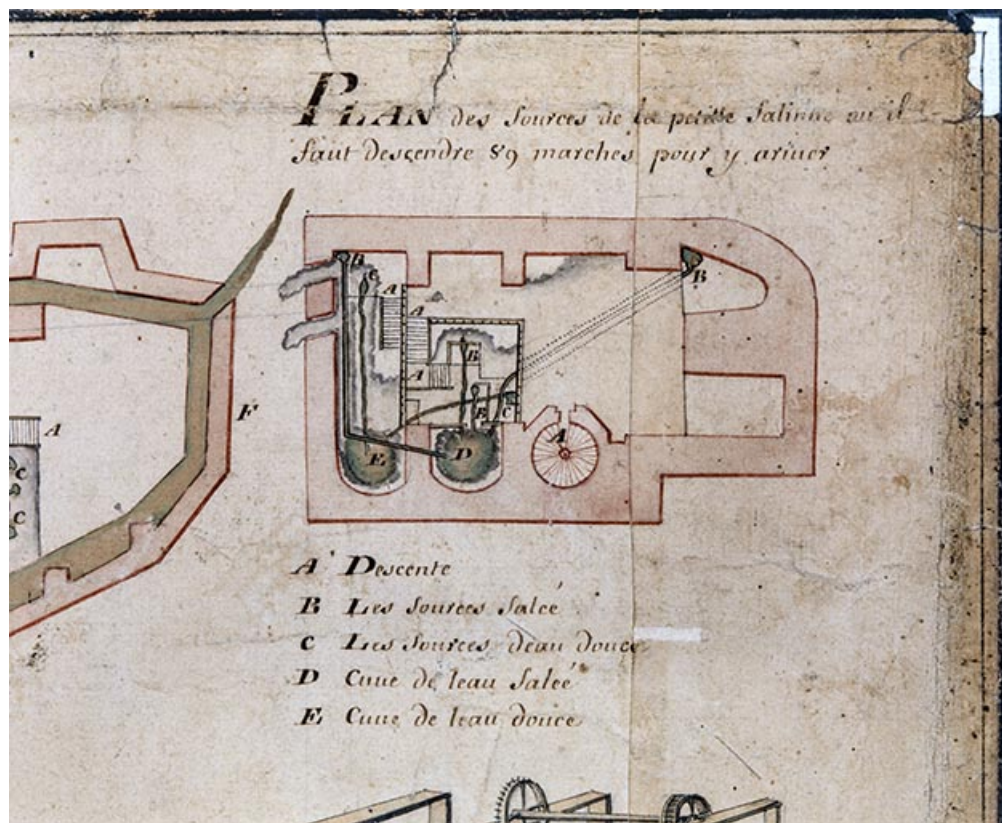 PLAN des Sources de la petitte Salinne ou il
faut descendre 89 marches pour y ariver
B
C
A
A
B
A
B
C
B
A
E
D
F
A
C
C
A Descente
B Les Sources Saleé
C Les Sources deau douce
D Cuve de leau Saleé
E Cuve de leau douce